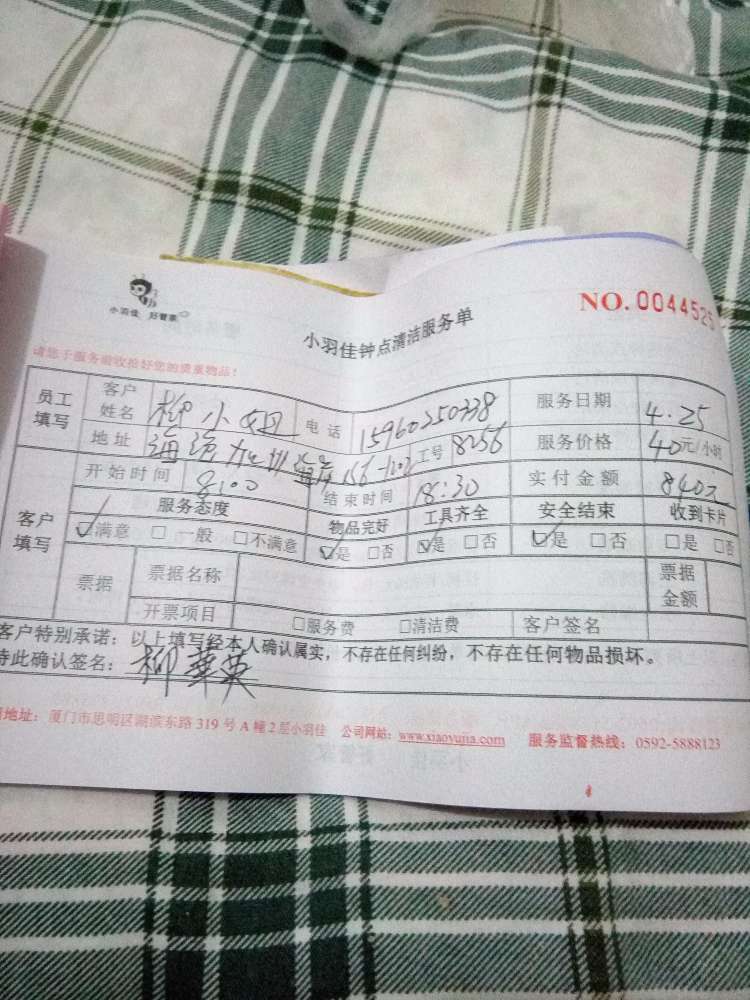 小羽佳 好管家
小羽佳钟点清洁服务单
NO. 0044525
请您于服务前收拾好您的贵重物品！
员工填写 客户姓名 柳小姐 电话 15960250338 服务日期 4.25
地址 海沧 156-1202 工号 8256 服务价格 40元/小时
客户填写 开始时间 8:00 结束时间 18:30 实付金额 840元
服务态度 物品完好 工具齐全 安全结束 收到卡片
☑满意 □一般 □不满意 ☑是 □否 ☑是 □否 ☑是 □否 □是 □否
票据 票据名称 票据金额
开票项目 □服务费 □清洁费 客户签名
客户特别承诺：以上填写经本人确认属实，不存在任何纠纷，不存在任何物品损坏。
特此确认签名：柳华英
地址：厦门市思明区湖滨东路 319 号 A 幢 2 层小羽佳 公司网站：www.xiaoyujia.com 服务监督热线：0592-5888123